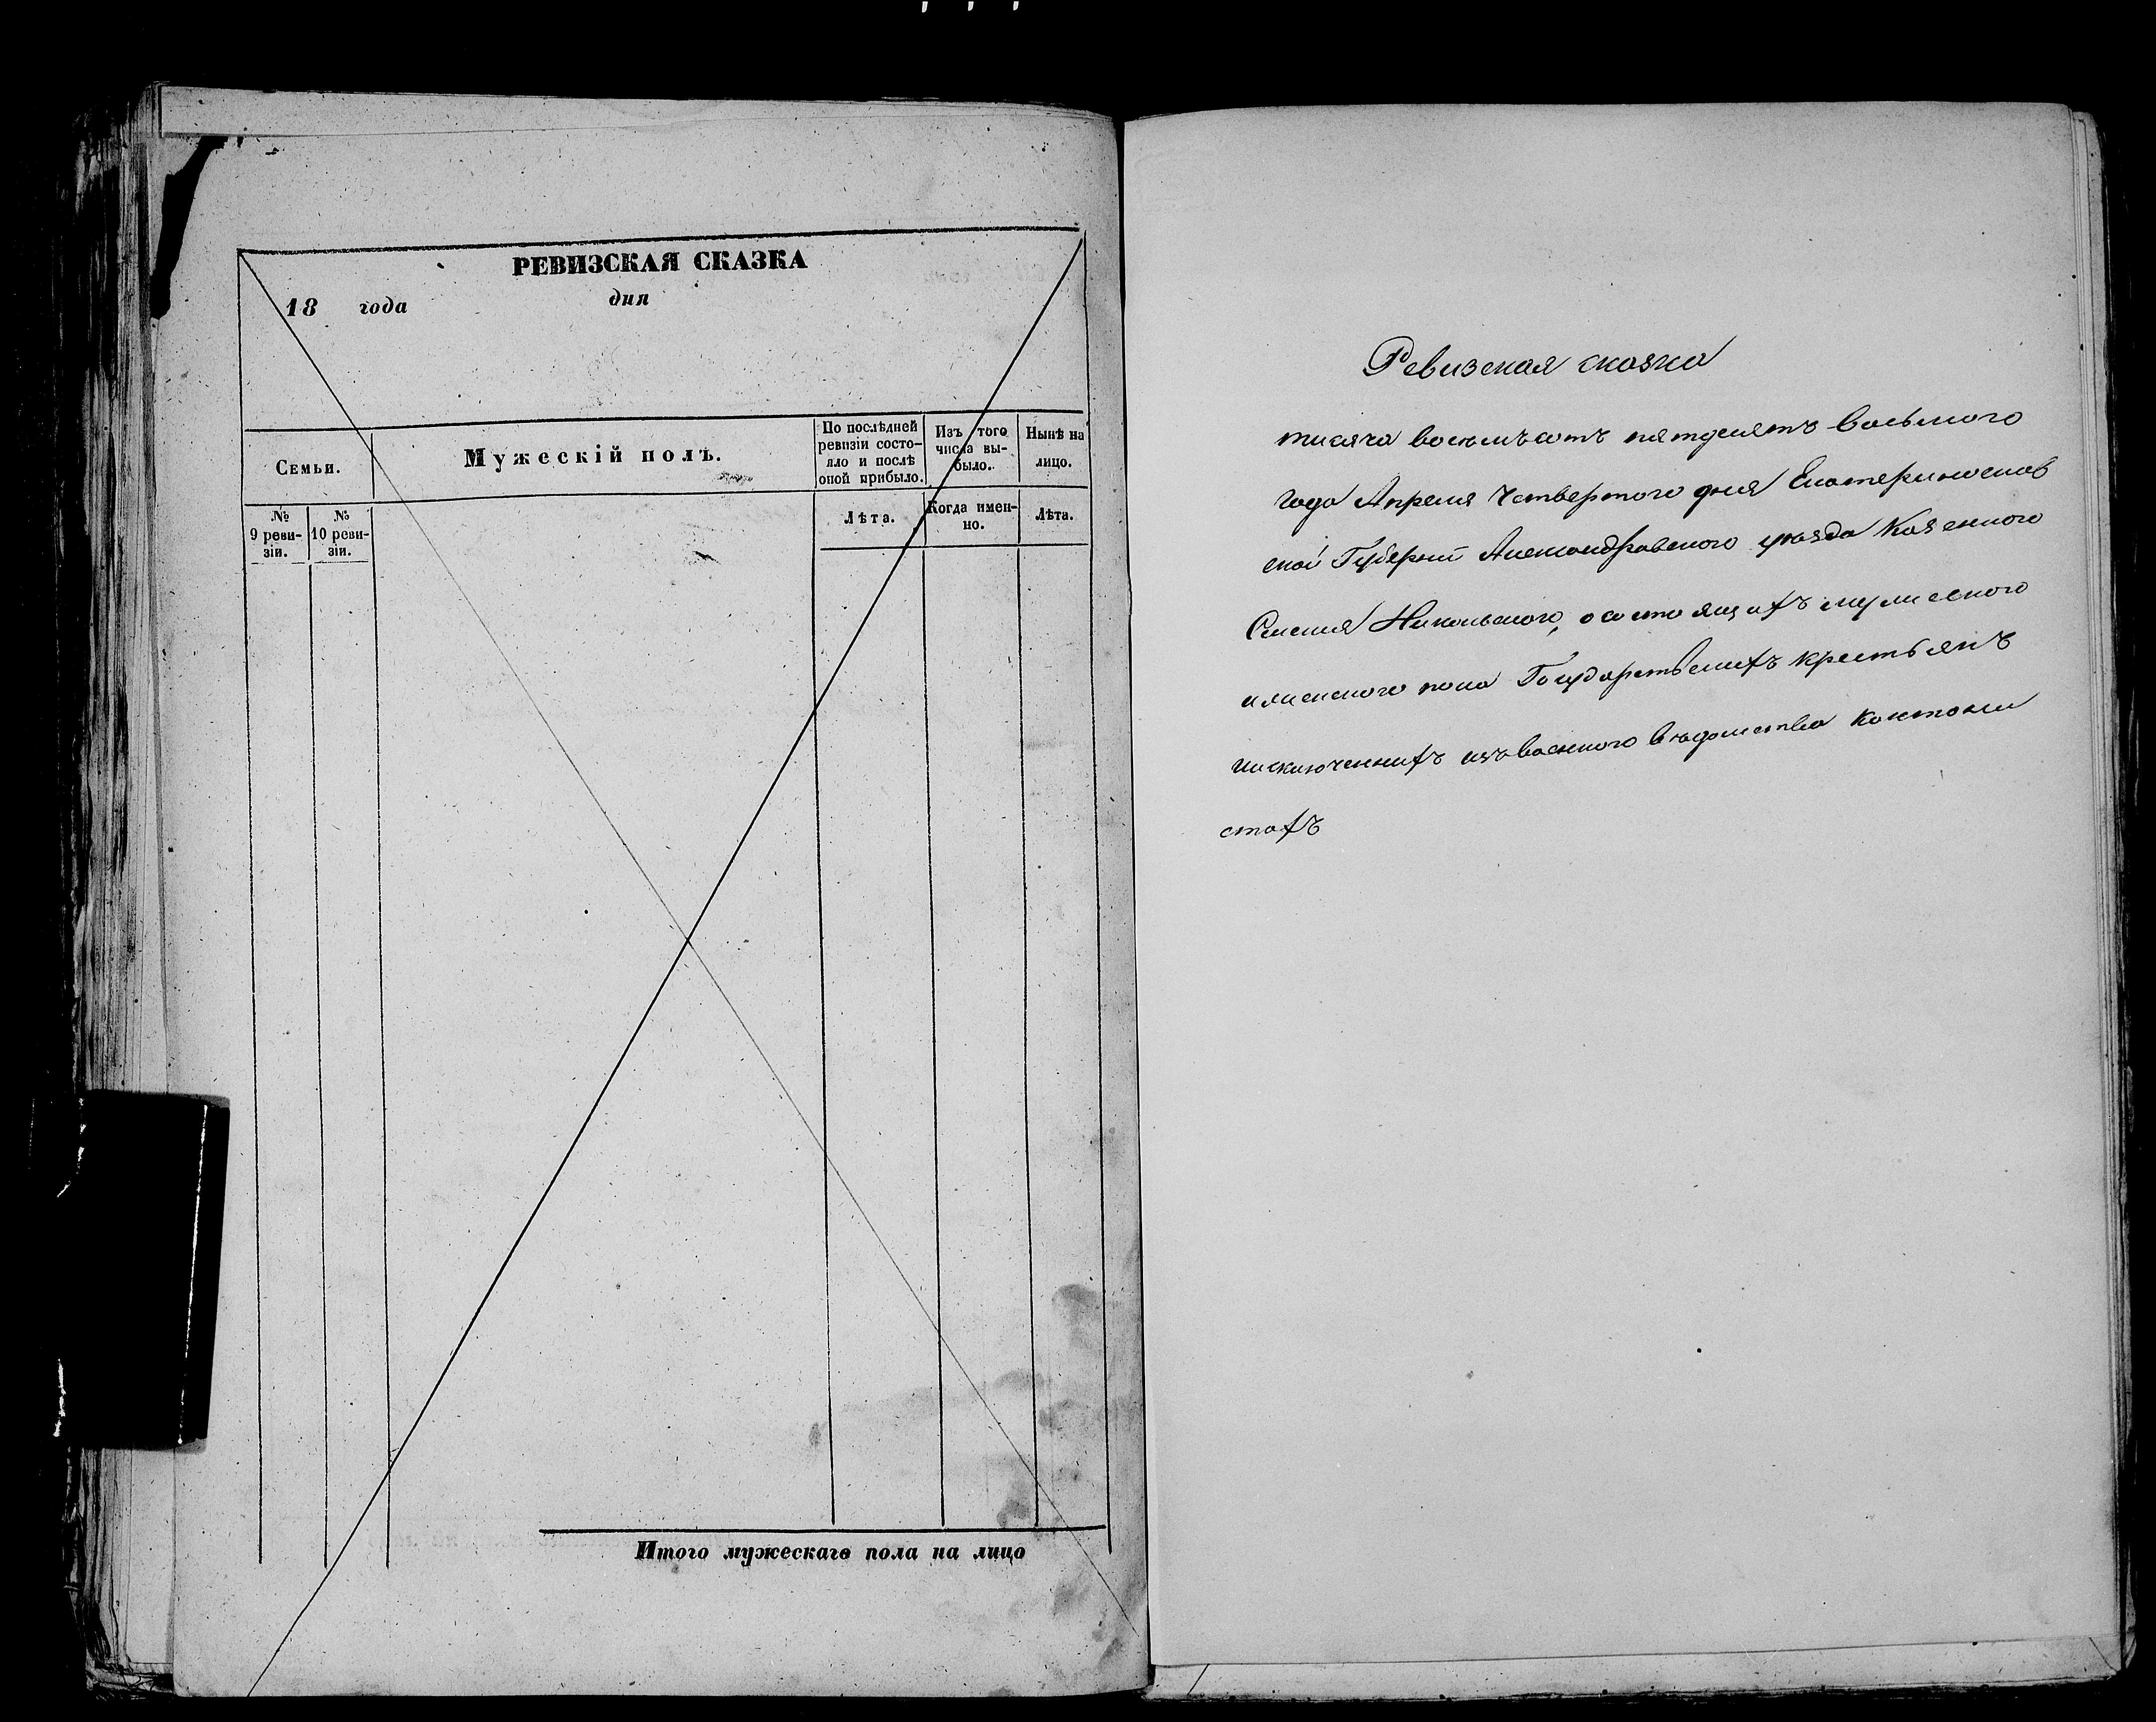 РЕВИЗСКАЯ СКАЗКА
18 года дня
Семьи.
Мужескій полъ.
По послѣдней
ревизіи состо-
яло и послѣ
оной прибыло.
Изъ того
числа вы-
было.
Нынѣ на
лицо.
№
9 реви-
зіи.
№
10 реви-
зіи.
Лѣта.
Когда имен-
но.
Лѣта.
Итого мужескаго пола на лицо
Ревизская сказка
тисяча восемъсотъ пятдесятъ восьмого
года Апреля Четвертого дня Екатеринослав
ской Губерніи Александравского уезда Казенного
Силения Никольского, о состоящихъ мужеского
и женского пола Государственихъ крестьянъ
изключеннихъ изъ военного вѣдомства Контони
стахъ